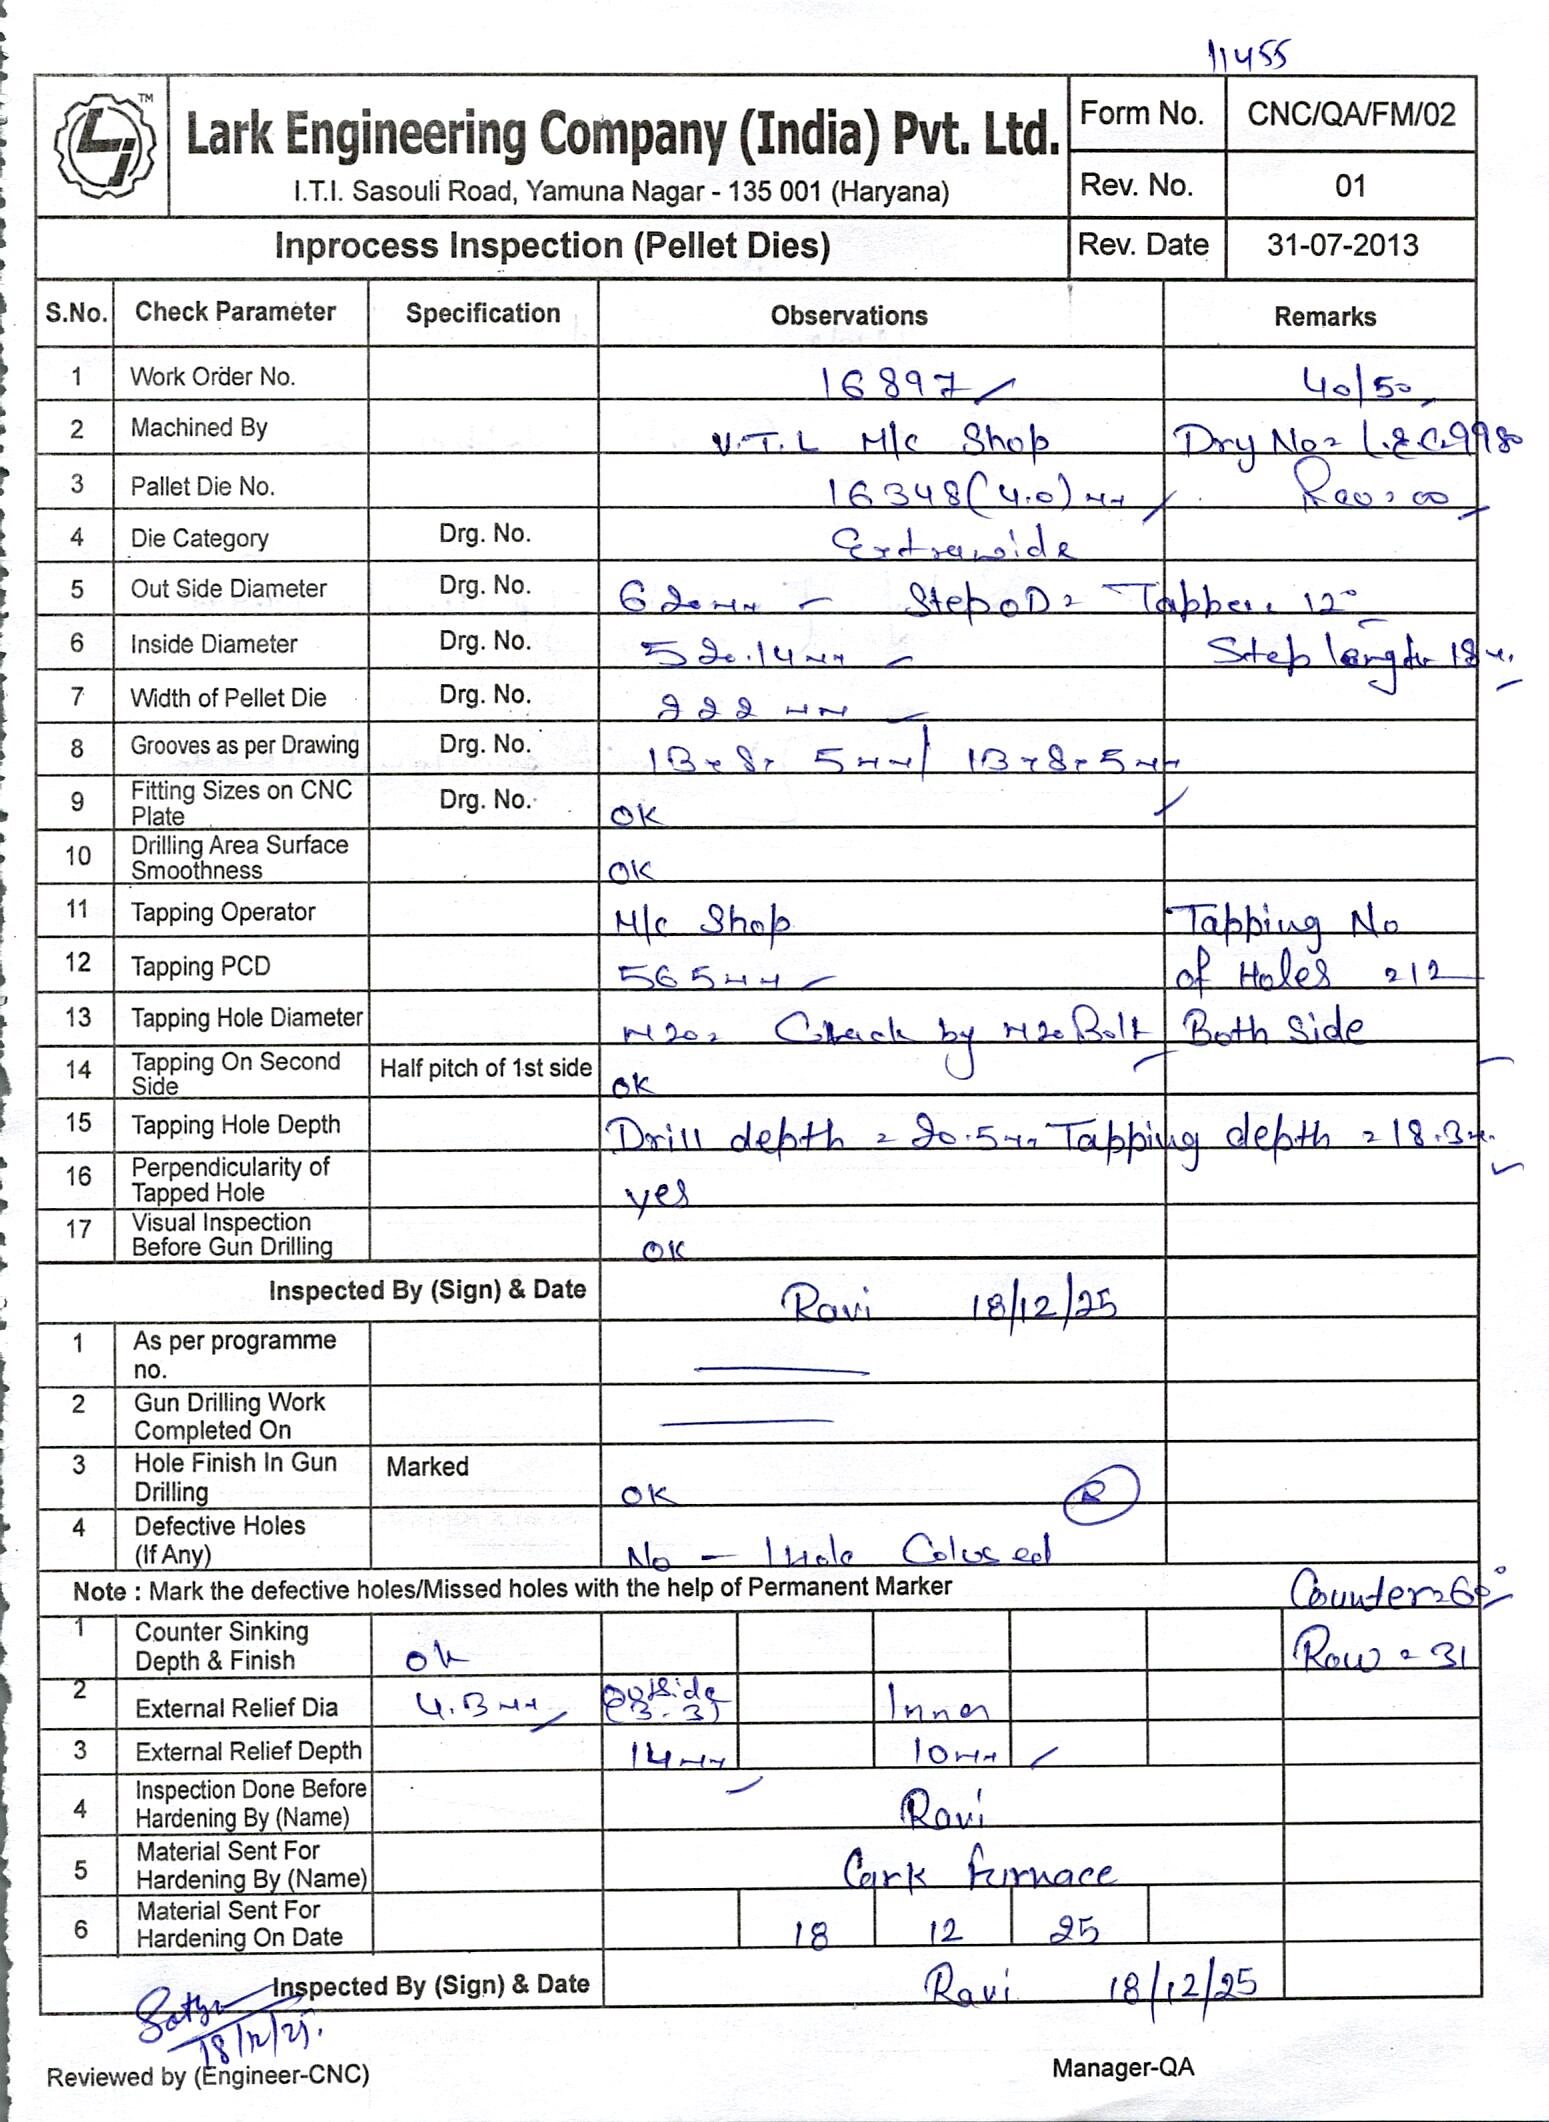 11455
LI TM
Lark Engineering Company (India) Pvt. Ltd.
I.T.I. Sasouli Road, Yamuna Nagar - 135 001 (Haryana)
Form No. CNC/QA/FM/02
Rev. No. 01
Inprocess Inspection (Pellet Dies) Rev. Date 31-07-2013
S.No. Check Parameter Specification Observations Remarks
1 Work Order No. 16897 40/50
2 Machined By V.T.L M/c Shop Dry No= L.E.C.998
3 Pallet Die No. 16348(4.0)mm Rev=00
4 Die Category Drg. No. Extrawide
5 Out Side Diameter Drg. No. 620mm - Step OD= Tapper. 12°
6 Inside Diameter Drg. No. 520.14mm Step length 18m.
7 Width of Pellet Die Drg. No. 222 mm
8 Grooves as per Drawing Drg. No. 13x8x 5mm/ 13x8x5mm
9 Fitting Sizes on CNC Plate Drg. No. OK
10 Drilling Area Surface Smoothness OK
11 Tapping Operator M/c Shop Tapping No
12 Tapping PCD 565mm of Holes =12
13 Tapping Hole Diameter M20= Check by M20 Bolt Both Side
14 Tapping On Second Side Half pitch of 1st side OK
15 Tapping Hole Depth Drill depth = 20.5mm Tapping depth = 18.3m.
16 Perpendicularity of Tapped Hole yes
17 Visual Inspection Before Gun Drilling OK
Inspected By (Sign) & Date Ravi 18/12/25
1 As per programme no.
2 Gun Drilling Work Completed On
3 Hole Finish In Gun Drilling Marked OK R
4 Defective Holes (If Any) No - 1 Hole Colused
Note : Mark the defective holes/Missed holes with the help of Permanent Marker Counter=60°
1 Counter Sinking Depth & Finish ok Row = 31
2 External Relief Dia 4.3mm Outside (3-3) Inner
3 External Relief Depth 14mm 10mm
4 Inspection Done Before Hardening By (Name) Ravi
5 Material Sent For Hardening By (Name) Lark Furnace
6 Material Sent For Hardening On Date 18 12 25
Inspected By (Sign) & Date Ravi 18/12/25
18/12/25.
Reviewed by (Engineer-CNC) Manager-QA